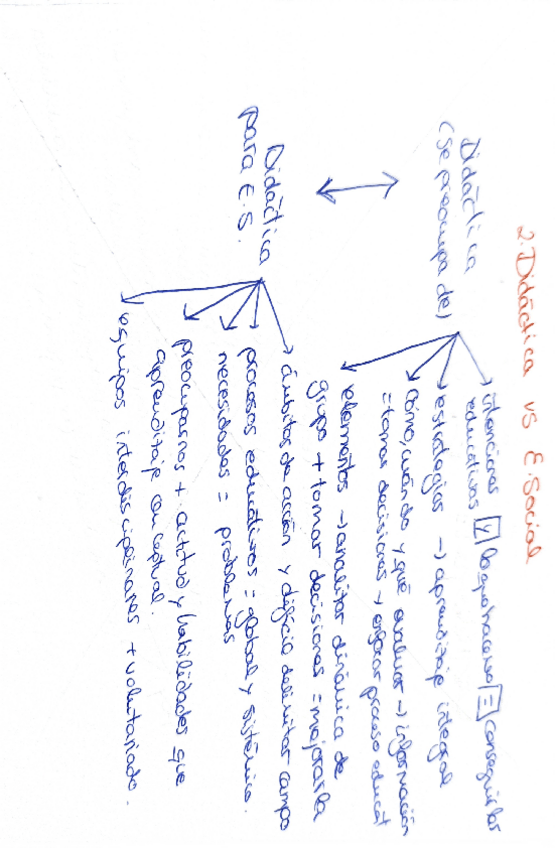 2. Didáctica vs E. Social
Didáctica
(se preocupa de)
intenciones
educativas y lo que hacemos = conseguirlas
estrategias → aprendizaje integral
cómo, cuándo y qué evaluar → información
= tomar decisiones → enfocar proceso educat
elementos → analizar dinámica de
grupo + tomar decisiones = mejorarla
Didáctica
para E.S.
ámbitos de acción y difícil delimitar campo
procesos educativos = global y sistémico.
necesidades = problemas
preocuparnos + actitud y habilidades que
aprendizaje conceptual.
equipos interdisciplinares + voluntariado.